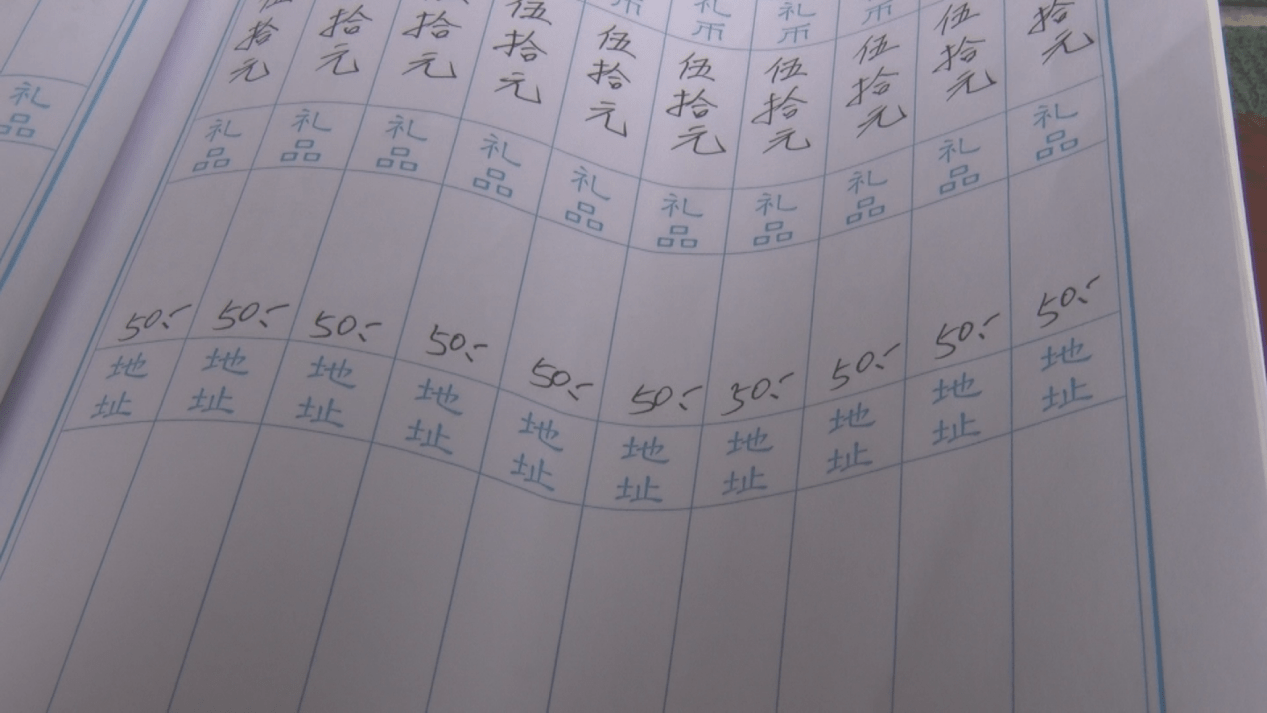 拾元 礼品 50.- 地址
伍拾元 礼品 50.- 地址
币 伍拾元 礼品 50.- 地址
礼币 伍拾元 礼品 50.- 地址
礼币 伍拾元 礼品 50.- 地址
币 伍拾元 礼品 50.- 地址
伍拾元 礼品 50.- 地址
拾元 礼品 50.- 地址
拾元 礼品 50.- 地址
拾元 礼品 50.- 地址
礼品